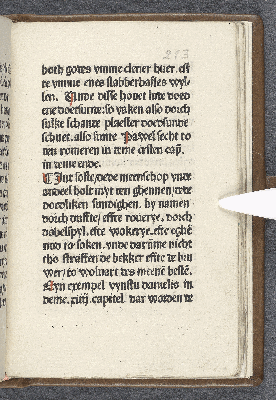 213
both godes vmme clener huer. eft
te vmme enes slabberbasses wyl-
len. Unde disse houet sunde doed
ene doetsunde: so vaken also dorch
sulke schantze plasseter doetsunde
schuet. also sunte Pawel secht to
den romeren in deme ersten capi.
in deme ende.
Int soste. dede menschop vnde
andeel holt myt den ghennen. de
doetliken sundighen. by namen
dorch duffte. efte rouerye. dorch
dobelspyl. efte wokerye. efte eghen
nut to soken. vnde darumme nicht
tho straffen de bekker efte de bru
wer. to wolvart des meenen besten.
Eyn exempel vynstu danielis in
deme. xiiij. capitel. dar worden de